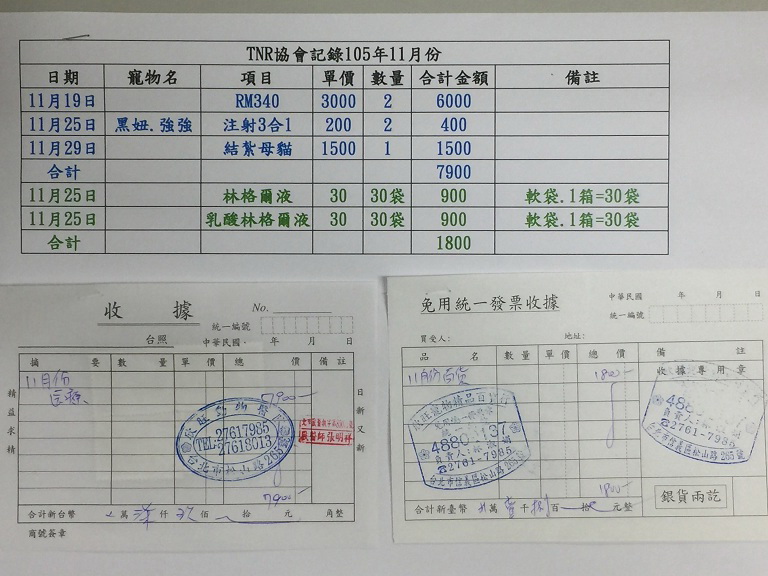 TNR協會記錄105年11月份
日期 寵物名 項目 單價 數量 合計金額 備註
11月19日 RM340 3000 2 6000
11月25日 黑妞.強強 注射3合1 200 2 400
11月29日 結紮母貓 1500 1 1500
合計 7900
11月25日 林格爾液 30 30袋 900 軟袋.1箱=30袋
11月25日 乳酸林格爾液 30 30袋 900 軟袋.1箱=30袋
合計 1800
收據 No.
統一編號
台照 中華民國 年 月 日
摘要 數量 單價 總價 備註
11月份 7900
醫療
精益求精
日新又新
欣旺動物醫
TEL:27617985
27618013
台北市松山路265號
獸醫師張明祥
7900
合計新台幣 萬 柒仟 玖佰 拾 元 角整
商號簽章
免用統一發票收據
中華民國 年 月 日
統一編號
買受人: 地址:
品名 數量 單價 總價 備註
11月份百貨 1800
收據專用章
欣旺寵物精品百貨
4880
負責人:
☎2761-7985
台北市信義區松山路265號
488
負責人:
☎2761-7985
台北市信義區松山路265號
1800
銀貨兩訖
合計新臺幣 萬 壹千 捌百 拾 元整